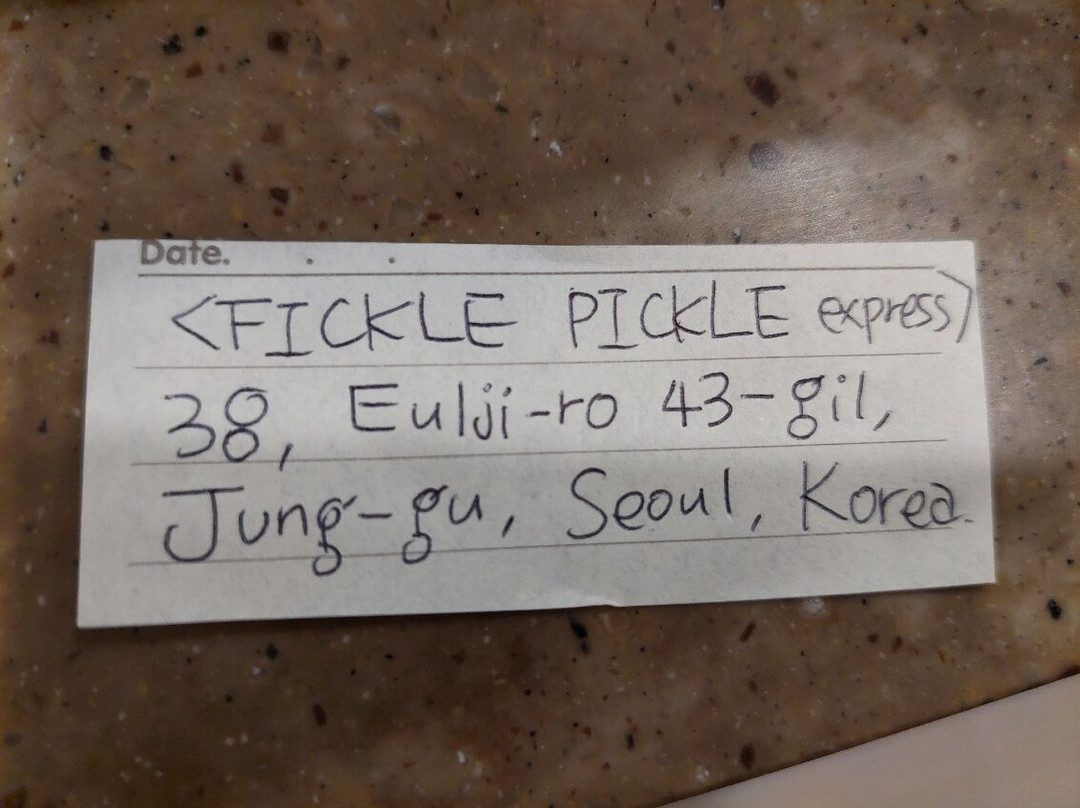 Date. . .
<FICKLE PICKLE express>
38, Eulji-ro 43-gil,
Jung-gu, Seoul, Korea.